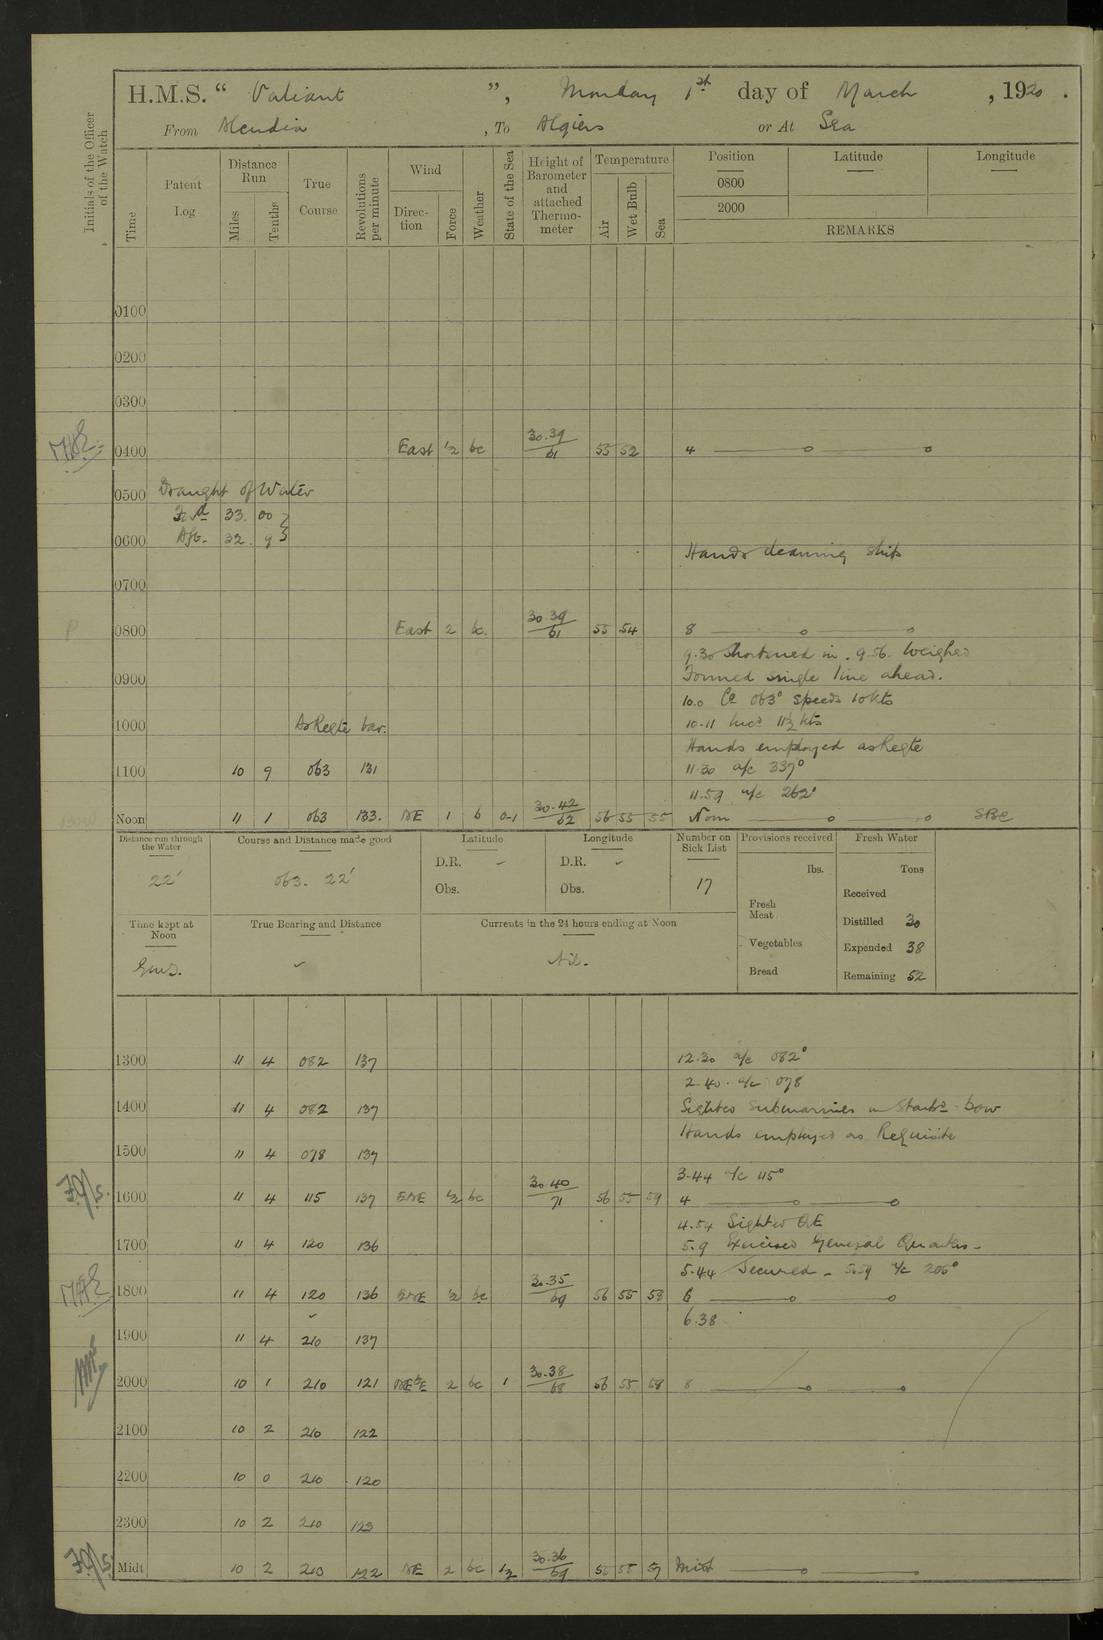 H.M.S. “ Valiant ”, Monday 1st day of March, 1920.
From Alcudia, To Algiers or At Sea
Initials of the Officer of the Watch
Time
Patent Log
Distance Run
Miles
Tenths
True Course
Revolutions per minute
Wind
Direction
Force
Weather
State of the Sea
Height of Barometer and attached Thermometer
Temperature
Air
Wet Bulb
Sea
Position Latitude Longitude
0800
2000
REMARKS
0100
0200
0300
0400 East ½ bc 30.39/61 53 52 4
0500 Draught of Water
Fwd 33. 00
Aft. 32. 9
0600
Hands cleaning ship
0700
0800 East 2 bc. 30.39/61 53 54 8
9.30 Shortened in. 9.56. Weighed
Formed single line ahead.
0900
10.0 Co 063° speed 10 kts
1000 As Reqte bar. 10.11 Incd 11½ kts
Hands employed as Reqte
1100 10 9 063 131 11.30 a/c 337°
11.59 a/c 262°
Noon 11 1 063 133. NE 1 b 0-1 30.42/62 56 55 55 Noon SBC
Distance run through the Water
22'
Course and Distance made good
063. 22'
Latitude
D.R. -
Obs.
Longitude
D.R. -
Obs.
Number on Sick List
17
Provisions received
lbs.
Fresh Meat
Vegetables
Bread
Fresh Water
Tons
Received
Distilled 30
Expended 38
Remaining 52
Time kept at Noon
True Bearing and Distance
Currents in the 24 hours ending at Noon
Nil.
1300 11 4 082 137 12.30 a/c 082°
2.40. a/c 078
1400 11 4 082 137 Sighted Submarines on Starbd bow
Hands employed as Requisite
1500 11 4 078 137
3.44 a/c 115°
1600 11 4 115 137 ENE ½ bc 30.40/71 56 55 59 4
4.54 Sighted QE
1700 11 4 120 136 5.9 Exercised General Quarters -
5.44 Secured - 5.59 a/c 205°
1800 11 4 120 136 ENE ½ bc 30.35/69 56 55 58 6
6.38
1900 11 4 210 137
2000 10 1 210 121 NEbE 2 bc 1 30.38/68 56 55 58 8
2100 10 2 210 122
2200 10 0 210 120
2300 10 2 210 123
Midt 10 2 210 122 NE 2 bc ½ 30.36/69 55 55 57 Midt